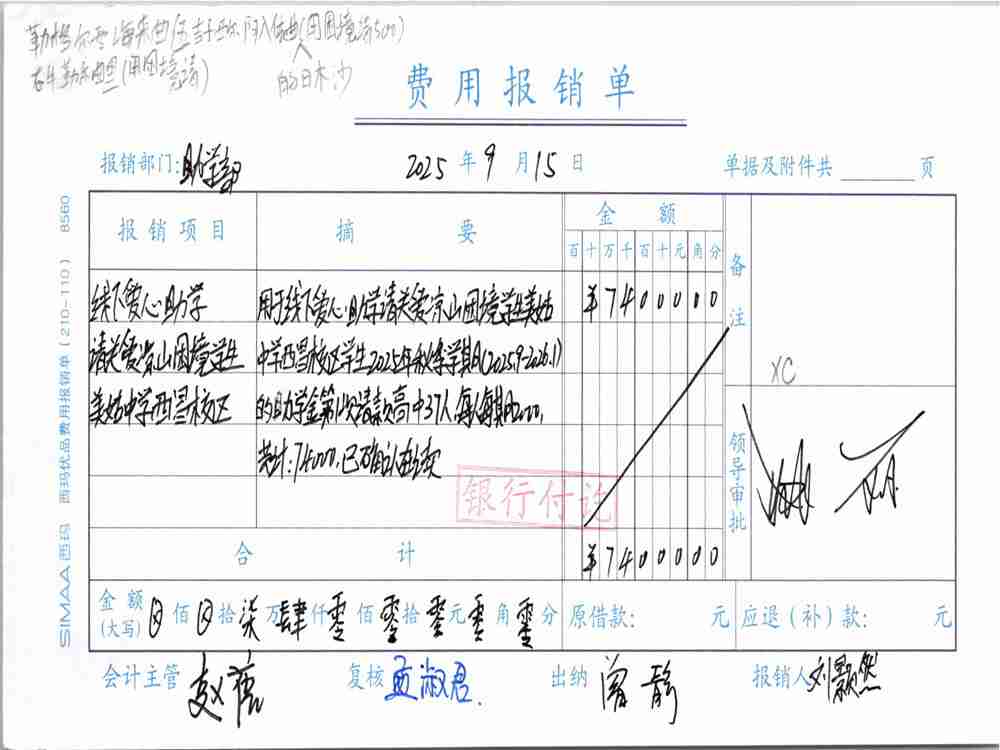 费用报销单
报销部门:助学部 2025年9月15日 单据及附件共 页
报销项目 摘要 金额 备注
百十万千百十元角分
线下爱心助学 用于线下爱心助学请关爱凉山困境学生美姑 ¥7400000
请关爱凉山困境学生 中学西昌校区学生2025年秋季学期(2025.9-2026.1)
美姑中学西昌校区 的助学金第1次请款高中37人,每人每期2000,
共计:74000,已确认在读
XC
领导审批
银行付讫
合计 ¥7400000
金额(大写) 佰 拾柒万肆仟零佰零拾零元零角零分 原借款: 元 应退(补)款: 元
会计主管 赵 复核 孟淑君. 出纳 曾静 报销人 刘颢然
SIMAA西玛 西玛优品费用报销单(210-110) 8560